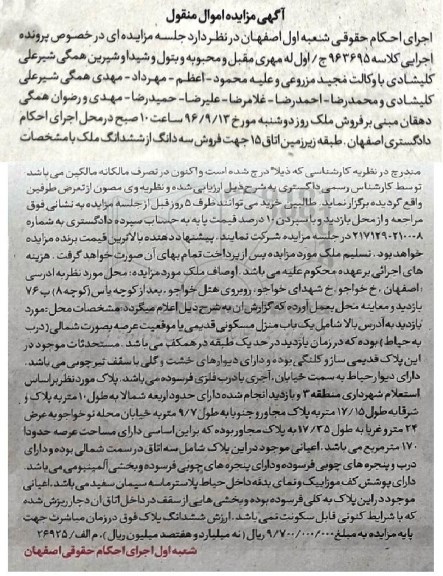 آگهی مزایده اموال منقول
اجرای احکام حقوقی شعبه اول اصفهان در نظر دارد جلسه مزایده ای در خصوص پرونده
اجرایی کلاسه ۹۶۳۶۹۵ ج/ اول له مهری مقبل و محبوبه و بتول و شیدا و شیرین همگی شیرعلی
کلیشادی با وکالت مجید مزروعی و علیه محمود - اعظم - مهرداد - مهدی همگی شیرعلی
کلیشادی و محمدرضا - احمدرضا - غلامرضا - علیرضا - حمیدرضا - مهدی و رضوان همگی
دهقان مبنی بر فروش ملک روز دوشنبه مورخ ۹۶/۹/۱۳ ساعت ۱۰ صبح در محل اجرای احکام
دادگستری اصفهان . طبقه زیرزمین اتاق ۱۵ جهت فروش سه دانگ از ششدانگ ملک با مشخصات
مندرج در نظریه کارشناسی که ذیلا درج شده است و اکنون در تصرف مالکانه مالکین می باشد
توسط کارشناس رسمی دادگستری به شرح ذیل ارزیابی شده و نظریه وی مصون از تعرض طرفین
واقع گردیده برگزار نماید. طالبین خرید می توانند ظرف ۵ روز قبل از جلسه مزایده به نشانی فوق
مراجعه و از محل بازدید و با سپردن ۱۰ درصد قیمت پایه به حساب سپرده دادگستری به شماره
۲۱۷۱۲۹۰۲۱۰۰۰۸ در جلسه مزایده شرکت نمایند. پیشنهاد دهنده بالاترین قیمت برنده مزایده
خواهد بود . تسلیم ملک مورد مزایده پس از پرداخت تمام بهای آن صورت خواهد گرفت . هزینه
های اجرائی بر عهده محکوم علیه می باشد . اوصاف ملک مورد مزایده: محل مورد نظر به ادرسی
:اصفهان ، خ خواجو ، خ شهدای خواجو، روبروی هتل خواجو ، بعد از کوچه یاس (کوچه ۸) پ ۷۶
بازدید و معاینه محل بعمل آورده که گزارش آن به شرح ذیل اعلام میگردد: مشخصات محل :مورد
بازدید به آدرس بالا شامل یک باب منزل مسکونی قدیمی با موقعیت عرصه بصورت شمالی (درب
به حیاط) بوده که در زمان بازدید در حد یک طبقه در همکف می باشد . مستحدثات موجود در
این پلاک قدیمی ساز و کلنگی بوده و دارای دیوارهای خشت و گلی با سقف تیر چوبی می باشد .
دارای دیوار حیاط به سمت خیابان ، آجری با درب فلزی فرسوده می باشد. پلاک مورد نظر بر اساس
استعلام شهرداری منطقه ۳ و بازدید انجام شده دارای حدود اربعه شمالا به طول ۱۰ متر به پلاک و
شرقا به طول ۱۷/۱۵ متر به پلاک مجاور و جنوبا به طول ۹/۷ متر به خیابان محله نو خواجو به عرض
۲۴ متر و غربا به طول ۱۷/۳۵ به پلاک مجاور بوده که بر این اساس دارای مساحت عرصه حدودا
۱۷۰ متر مربع می باشد . اعیانی موجود در این پلاک شامل سه اتاق در سمت شمالی بوده و دارای
درب و پنجره های چوبی فرسوده و دارای پنجره های چوبی فرسوده و بخشی آلمینیومی می باشد.
دارای پوشش کف موزاییک و نمای بدنه داخل حیاط پلاستر ماسه سیمان سفید می باشد. اعیانی
موجود در این پلاک به کلی فرسوده بوده و بخشی هایی از سقف در داخل اتاق ان دچار ریزش شده
که با شرایط کنونی قابل سکونت نمی باشد. ارزش ششدانگ پلاک فوق در زمان مباشرت جهت
پایه مزایده به مبلغ ۹/۷۰۰/۰۰۰/۰۰۰ ریال (نه میلیارد و هفتصد میلیون ریال ). م الف/ ۲۶۹۲۵
شعبه اول اجرای احکام حقوقی اصفهان